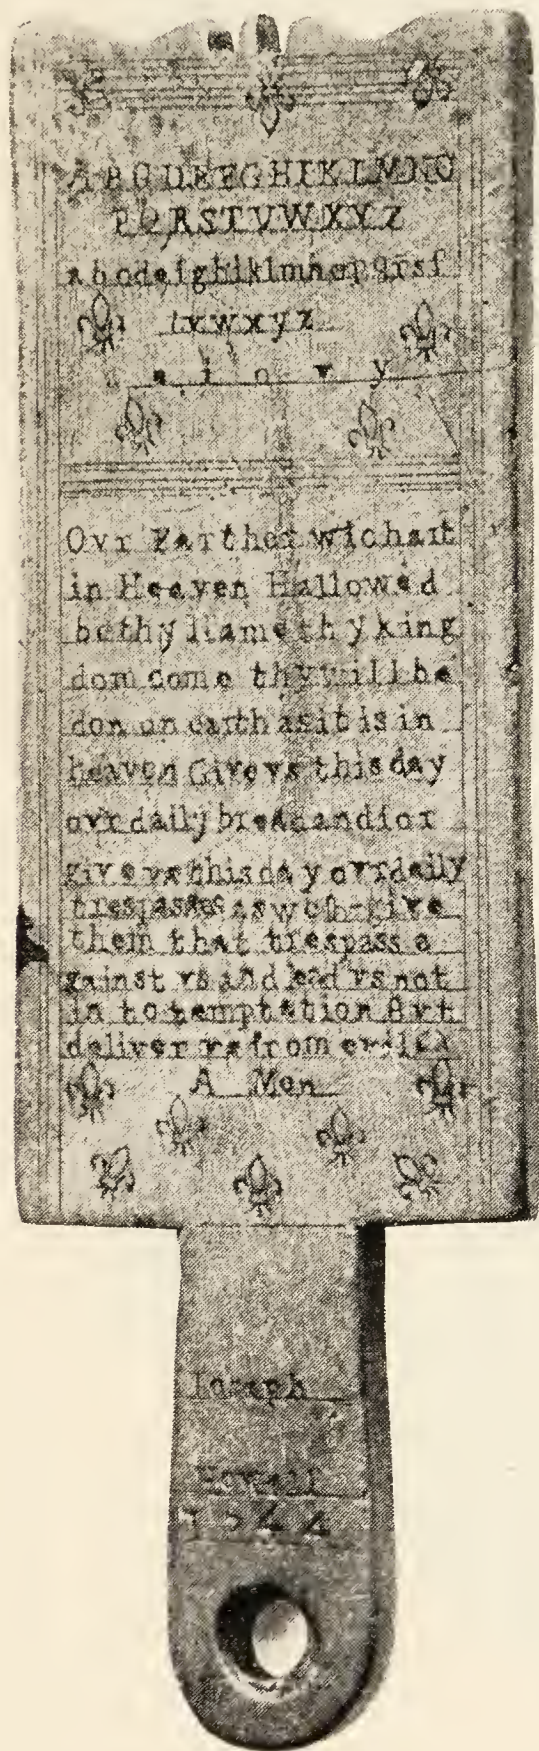 A B C D E F G H I K L M N O
P Q R S T V W X Y Z
a b c d e f g h i k l m n o p q r s f
t v w x y z
a e i o v y
Ovr Farther wich art
in Heaven Hallowed
be thy Name thy king
dom come thy will be
don on earth as it is in
heaven Give vs this day
ovr daily bread and for
give vs this day ovr daily
trespasses as we forgive
them that trespass a
gainst vs and lead vs not
in to temptation Bvt
deliver vs from evil
A Men
Ioseph